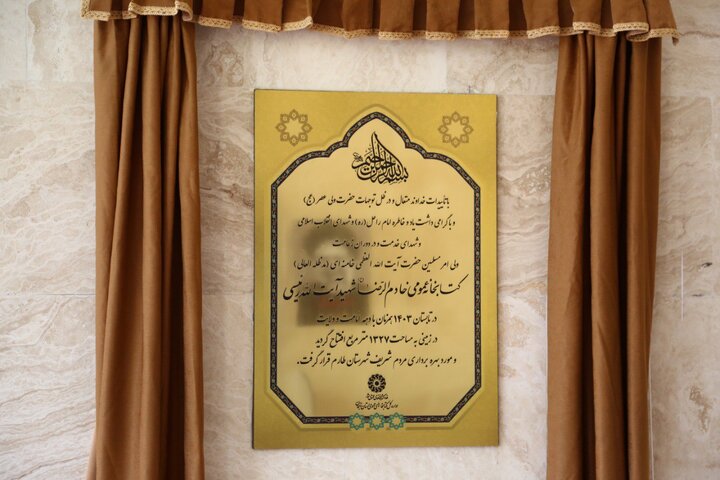 بسم الله الرحمن الرحیم
با تأییدات خداوند متعال و در ظل توجهات حضرت ولی عصر (عج)
و با گرامی داشت یاد و خاطره امام راحل (ره) و شهدای انقلاب اسلامی
و شهدای خدمت و در دوران زعامت
ولی امر مسلمین حضرت آیت الله العظمی خامنه ای (مدظله العالی)
کتابخانه عمومی خادم الرضا شهید آیت الله رئیسی
در تابستان ۱۴۰۳ همزمان با دهه امامت و ولایت
در زمینی به مساحت ۱۳۲۷ متر مربع افتتاح گردید
و مورد بهره برداری مردم شریف شهرستان طارم قرار گرفت.